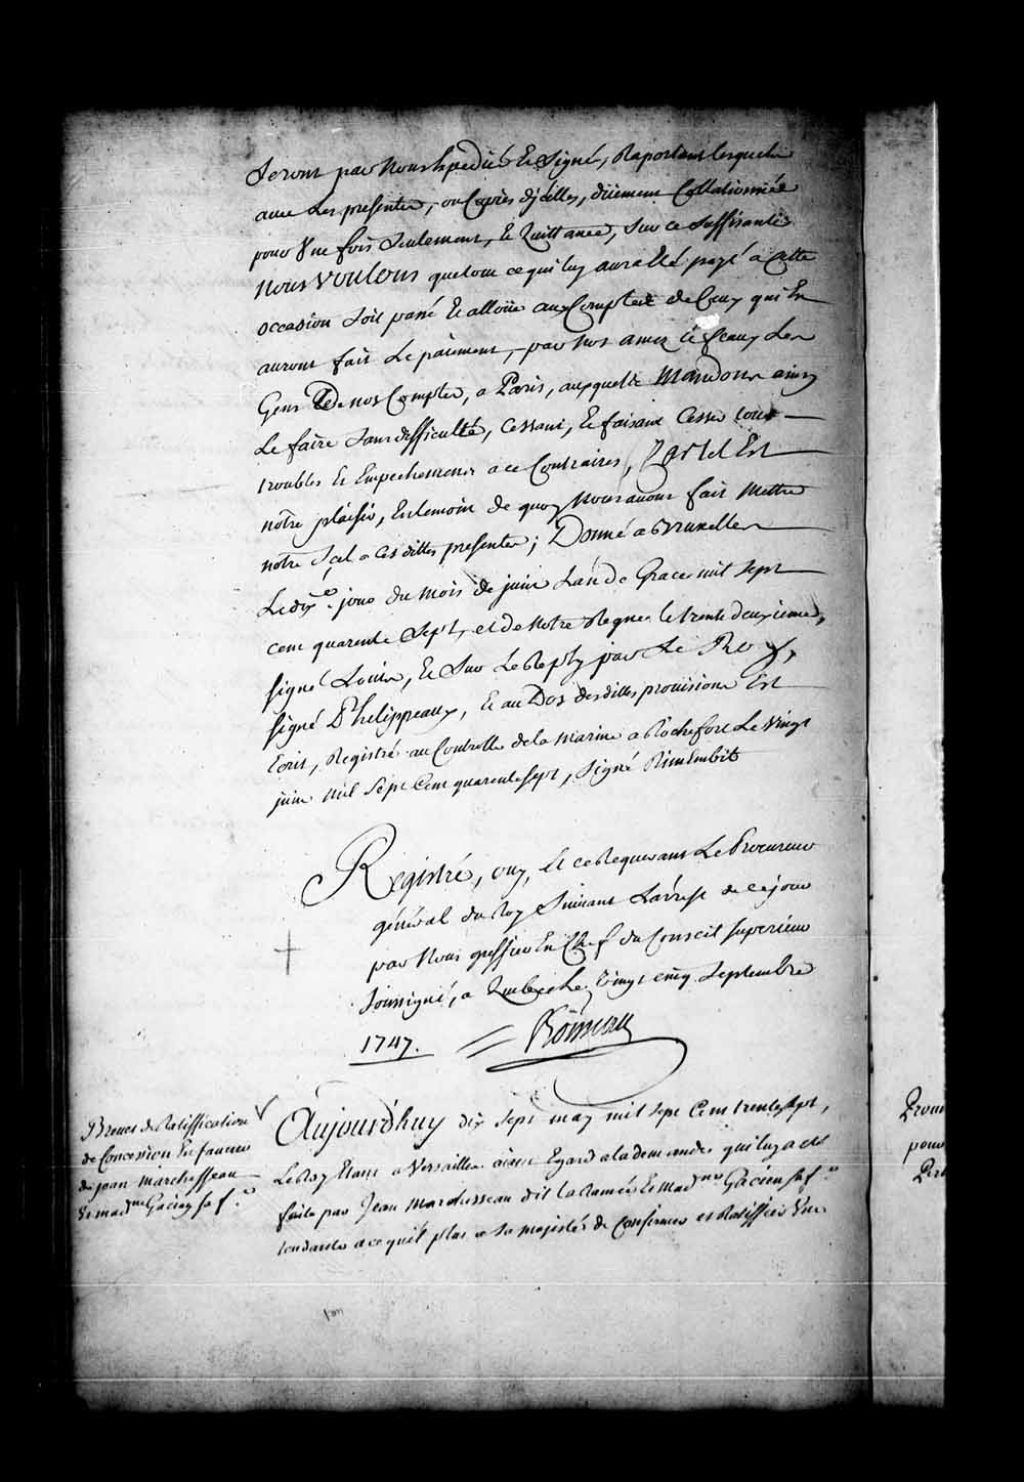 Seront par Nous Expediés Et Signé, Raportant lesquels
avec Les presentes, ou Copies d'jcelles, düement Collationnées
pour Une fois Seulement, Et Quittance, Sur ce Suffisante
Nous Voulons que tout ce qui luy aura Eté payé a Cette
occasion Soit passé Et alloüé aux Comptes de Ceux qui En
auront fait Le paiement, par Nos amez Et feaux Les
Gens De nos Comptes, a Paris, auxquels Mandons ainsy
Le faire Sans difficulté, Cessant, Et faisant Cesser tous
troubles Et Empechements a ce Contraires, Car tel Est
notre plaisir, En temoin de quoy Nous avons fait Mettre
notre Sçel a Ces dittes presentes; Donné a Bruxelles
Le dix.e jour du Mois de juin L'an De Grace mil Sept
cent quarente Sept, et de Notre Regne le trente deuxieme,
signé Louis, Et Sur Le Reply par Le Roy,
signé Phelippeaux, Et au Dos des dittes provisions Est
Ecrit, Registré au Controlle de la Marine a Rochefort Le Vingt
juin Mil Sept Cent quarente Sept, Signé
Registré, ouy, Et ce Requerant Le Procureur
général du Roy Suivant L'arrest de ce jour
par Nous greffier En Chef du Conseil Superieur
Soussigné, a Quebec Le Vingt cinq Septembre
1747. Boisseau
Brevet de Ratiffication
de Concession En faveur
de jean Marchesseau
Et mad.ne Gacien sa f.e
Aujourd'huy dix Sept may mil Sept Cent trente Sept,
Le Roy Etant a Versailles aiant Egard a la demande qui luy a eté
faite par Jean Marchesseau dit la Ramée Et Mad.ne Gacien sa f.e
tendante a ce qu'il plut a Sa Majesté de Confirmer et Ratiffier Une